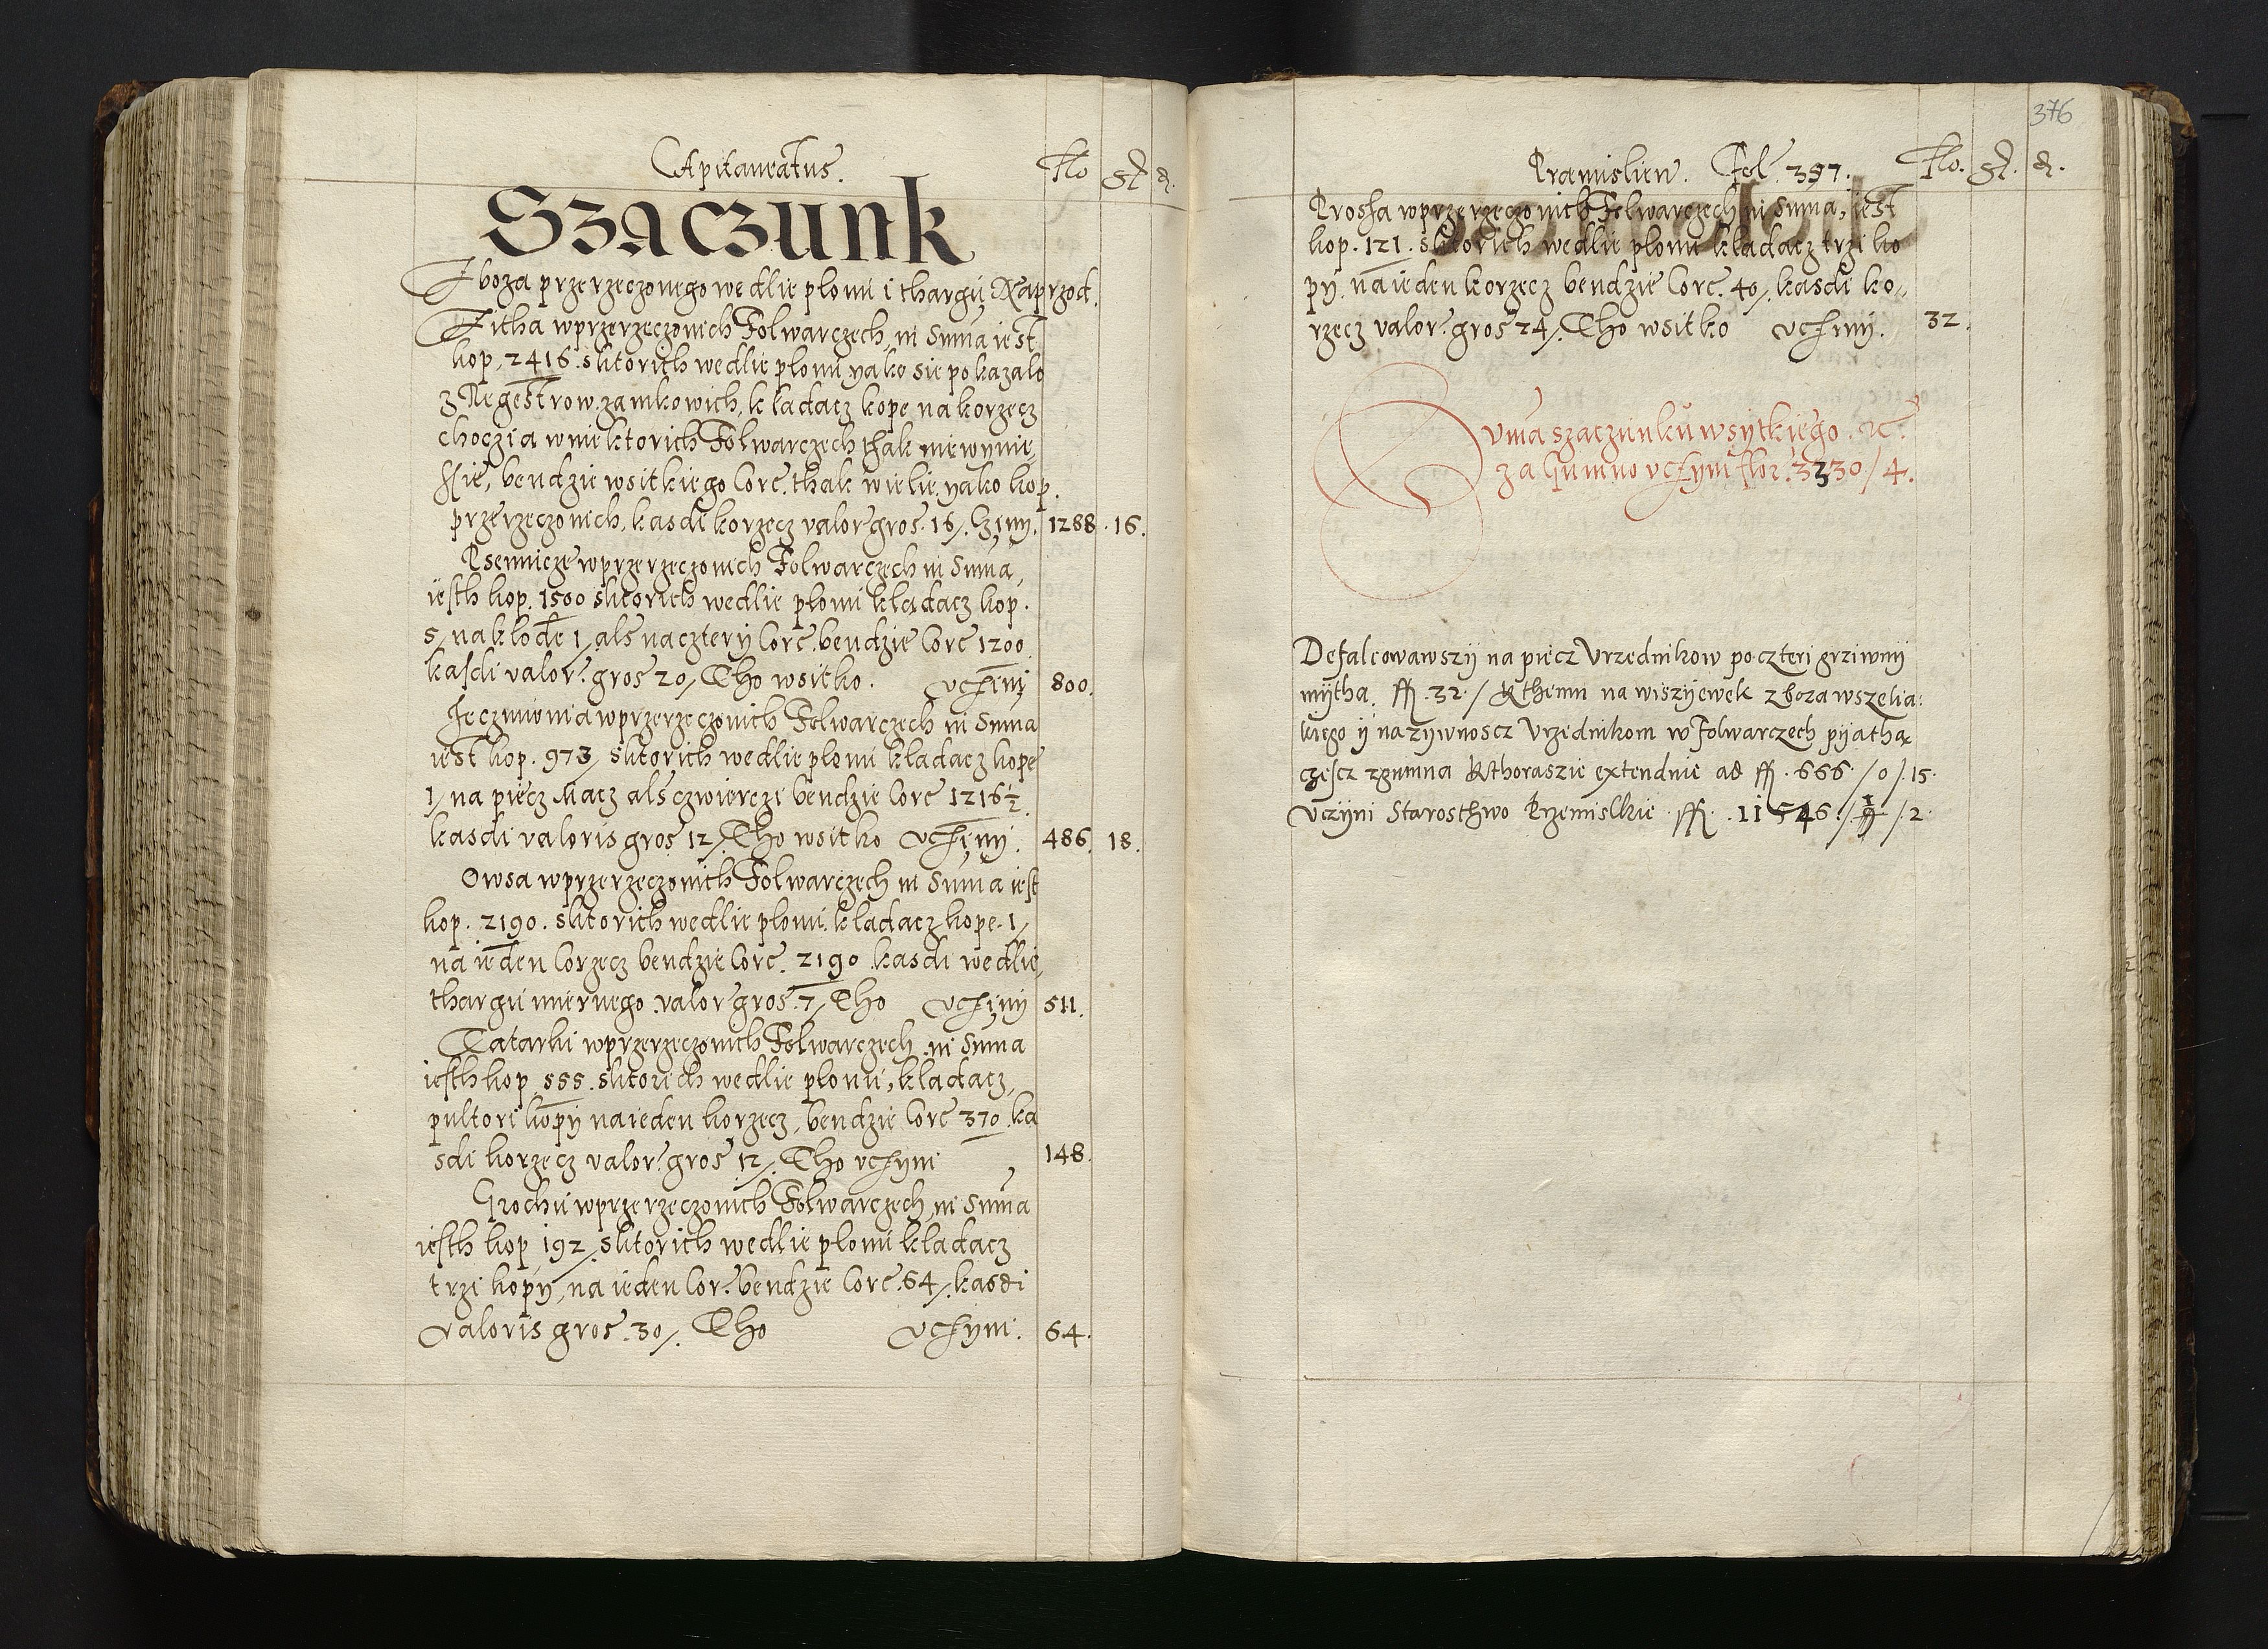 Capitaneatus. Flo gr d.
Szaczunk
Zboza przerzeczonego wedlie plonu i thargu Naprzod.
Zitha wprzerzeczonich Folwarczech in Suma iest
kop. 2416. sktorich wedlie plonu yako sie pokazalo
z Regestrow zamkowich, kladacz kope na korzecz
choczia wniektorich Folwarczech thak niewynie,
sſie, bendzie wsitkiego Corc. thak wielie yako kop.
przerzeczonich, kasdi korzecz valor gros. 16/. Czini. 1288. 16.
Psennicze wprzerzeczonich Folwarczech in Suma,
iesth kop. 1500 sktorich wedlie plonu kladacz kop.
5/ na klode 1/ als na cztery Corc. bendzie Corc 1200.
kasdi valor. gros 20/ Tho wsitko. uczini 800.
Jeczmienia wprzerzeczonich Folwarczech in Suma
iest kop. 973/ sktorich wedlie plonu kladacz kope
1/ na piecz Macz als czwierczi bendzie Corc 1216½.
kasdi valoris gros 12/. Tho wsitko uczini. 486. 18.
Owsa wprzerzeczonich Folwarczech in Suma iest
kop. 2190. sktorich wedlie plonu kladacz kope. 1/
na ieden Corzecz bendzie Corc. 2190. kasdi wedlie,
thargu miernego valor gros. 7/ Tho uczini 511.
Tatarki wprzerzeczonich Folwarczech in Suma
iesth kop 555. sktorich wedlie plonu, kladacz,
pultori kopy naieden korzecz, bendzie Corc 370. ka
sdi korzecz valor. gros 12/. Tho uczyni 148.
Grochu wprzerzeczonich Folwarczech in Suma
iesth kop 192/. sktorich wedlie plonu kladacz
trzi kopy, na ieden Cor. bendzie Corc. 64/. kasdi
valoris gros. 30/. Tho uczyni. 64.
376
Præmislien. Fol. 397. Flo. gr. d.
Prossa wprzerzeczonich Folwarczech in Suma, iest
kop. 121. sktorich wedlie plonu kladacz trzi ko
py. na ieden korzecz bendzie Corc. 40/. kasdi ko„
rzecz valor. gros 24/. Tho wsitko uczini. 32.
Suma szaczunku wsytkiego. etc.
za Gumno uczyni flor. 3330/4.
Defalcowawszy na piecz Vrzednikow po czteri grziwny
mytha. ff. 32./ K themu na wiszyewek zboza wszelia:
kiego y na zywnoscz Vrzednikom w Folwarczech pyatha
czescz zgumna Kthorasie extendnie ad ff. 666./0/.15.
Vczyni Starosthwo Przemislkie ff. 11546./9/.2.